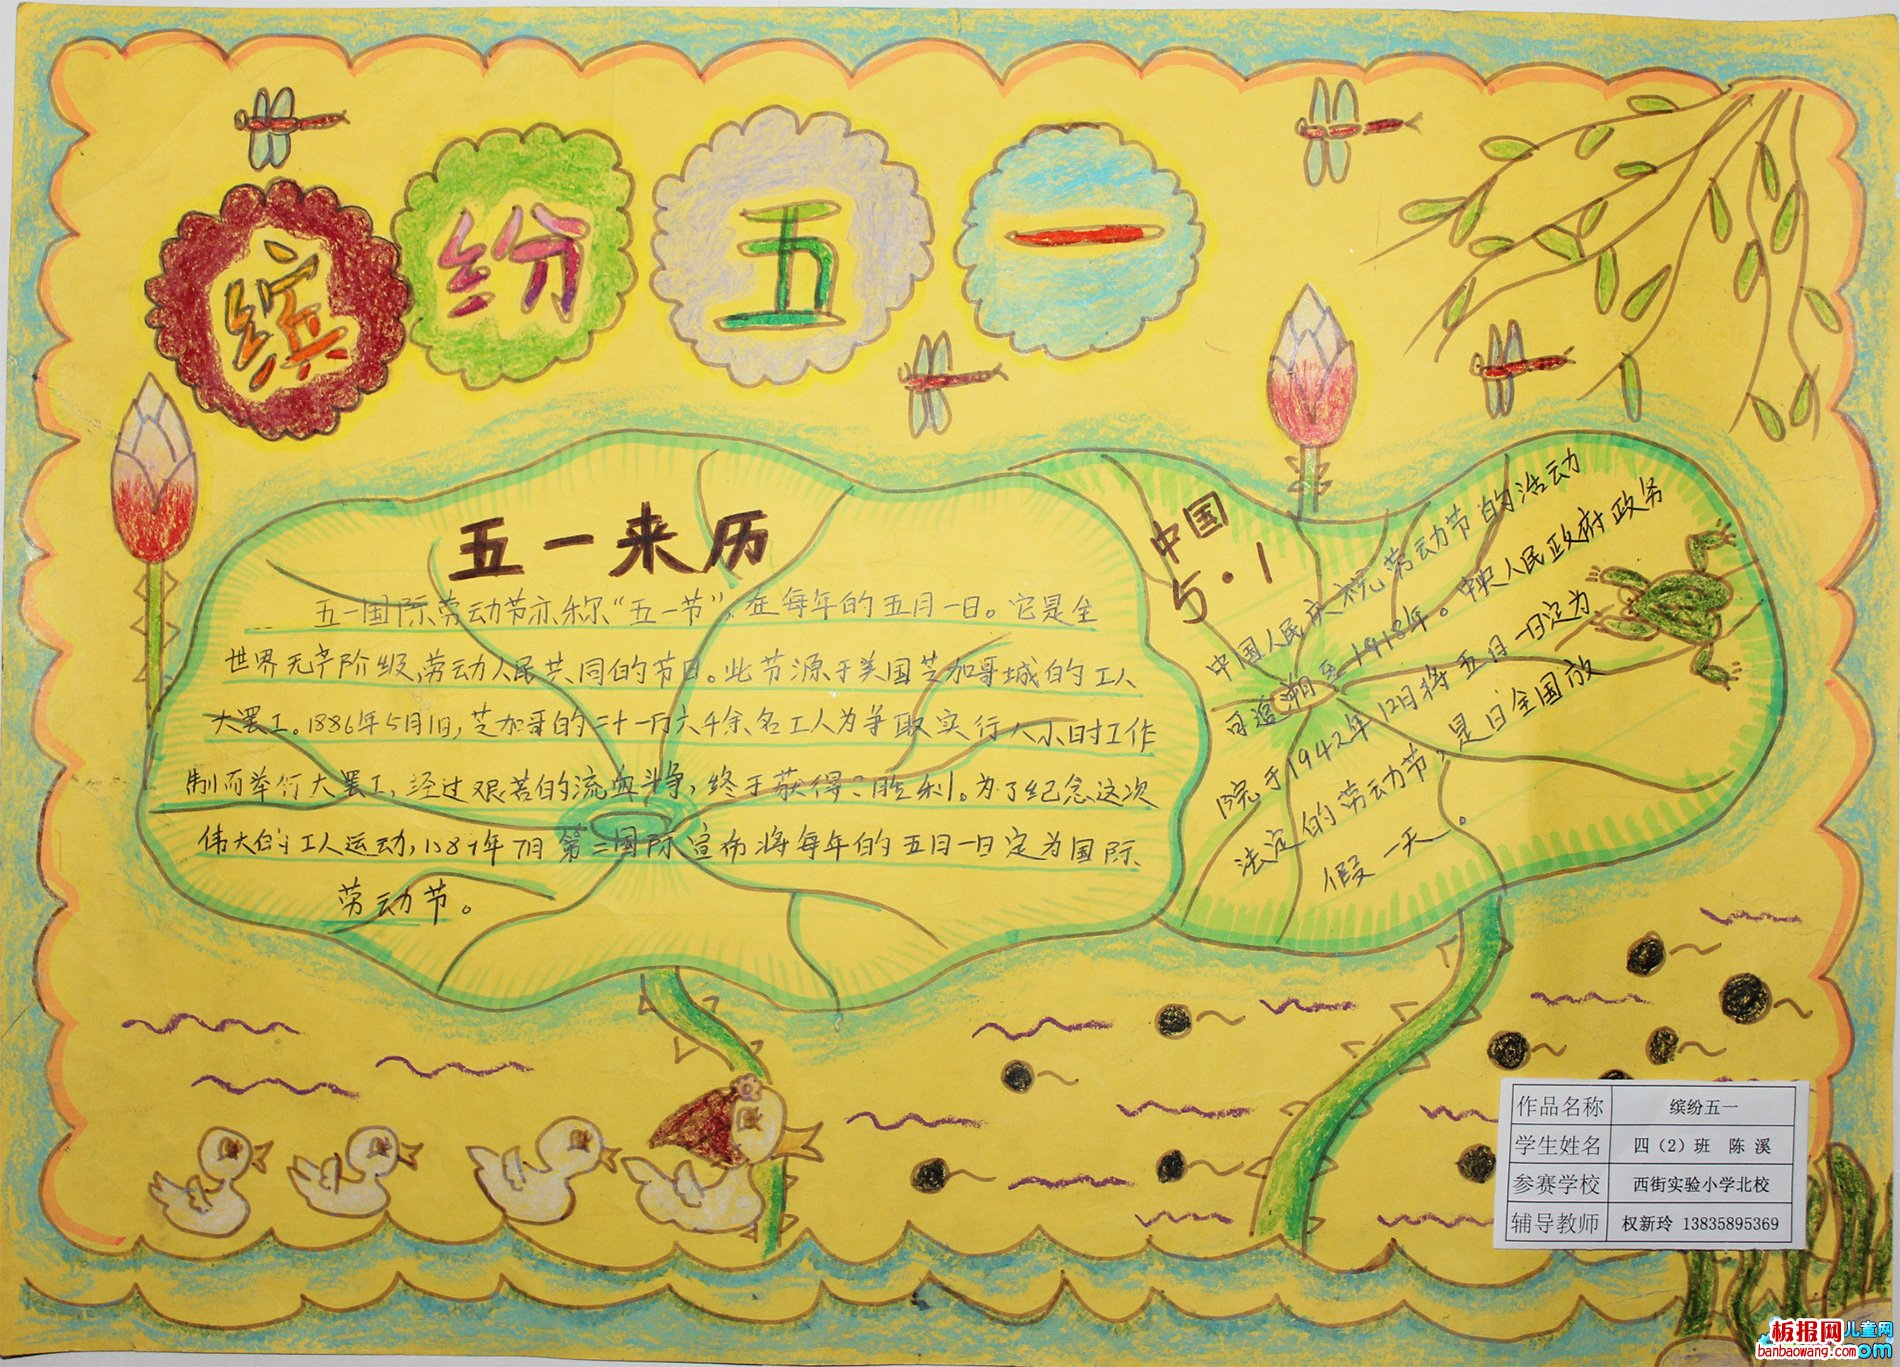 缤纷五一
五一来历
五一国际劳动节亦称“五一节”,在每年的五月一日。它是全
世界无产阶级,劳动人民共同的节日。此节源于美国芝加哥城的工人
大罢工。1886年5月1日,芝加哥的二十一万六千余名工人为争取实行八小时工作
制而举行大罢工,经过艰苦的流血斗争,终于获得了胜利。为了纪念这次
伟大的工人运动,1889年7月第二国际宣布将每年的五月一日定为国际
劳动节。
中国
5.1
中国人民庆祝劳动节的活动
可追溯至1918年。中央人民政府政务
院于1942年12日将五月一日定为
法定的劳动节,是日全国放
假一天。
作品名称 缤纷五一
学生姓名 四(2)班 陈溪
参赛学校 西街实验小学北校
辅导教师 权新玲 13835895369
板报网儿童网
banbaowang.com